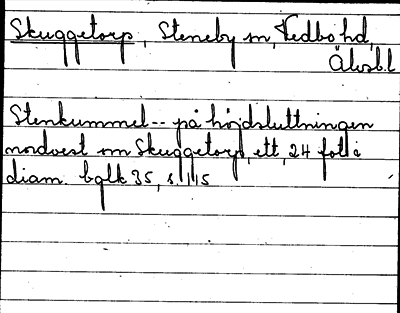 Skuggetorp, Steneby sn, Vedbo hd,
Älvsb.l
Stenkummel -- på höjdsluttningen
nordvest om Skuggetorp, ett, 24 fot i
diam. bglk 35, s. 115